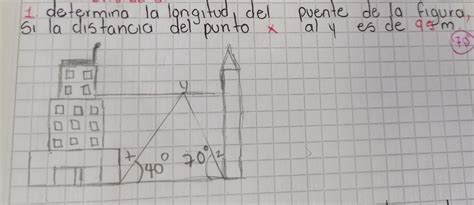 1 determina la longitud del puente de la figura,
Si la distancia del punto x al y es de 97m
y
x 40° 70° z